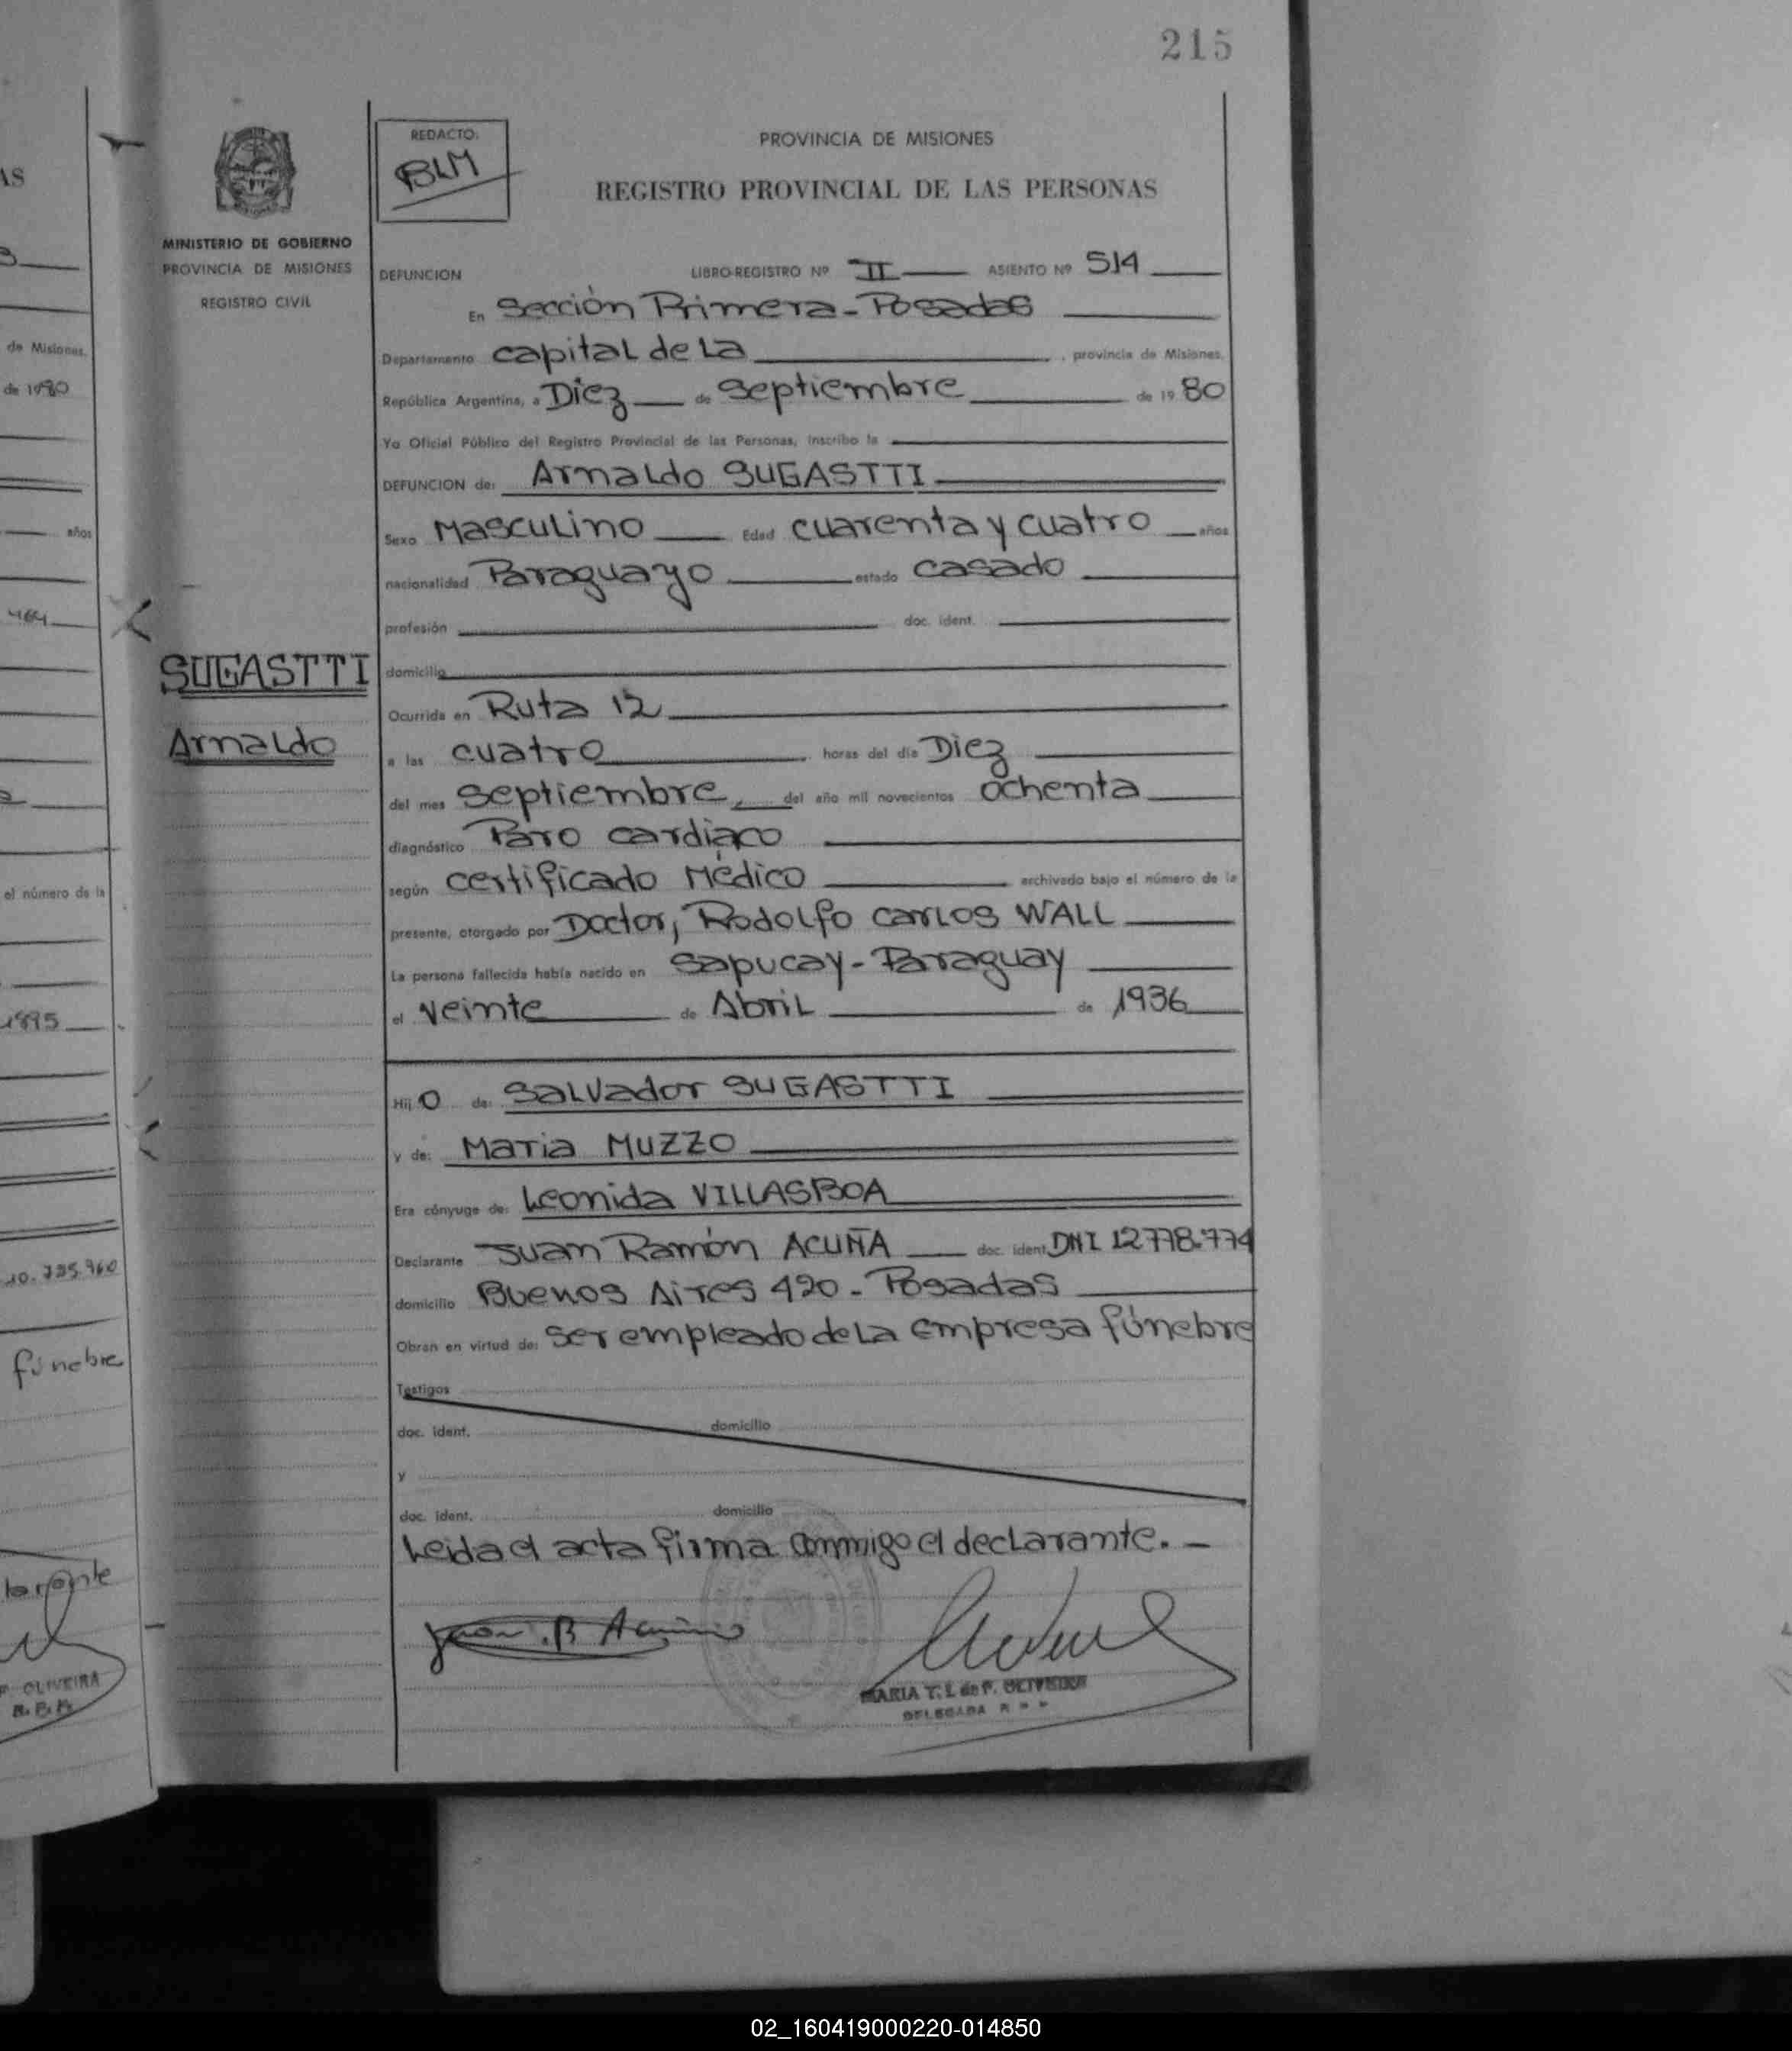 215
AS
de Misiones.
de 1980
años
464
el número de la
1895
10.735.960
fúnebre
OLIVEIRA
MINISTERIO DE GOBIERNO
PROVINCIA DE MISIONES
REGISTRO CIVIL
SUGASTTI
Arnaldo
REDACTO:
BLM
PROVINCIA DE MISIONES
REGISTRO PROVINCIAL DE LAS PERSONAS
DEFUNCION LIBRO-REGISTRO Nº II ASIENTO Nº 514
En Sección Primera - Posadas
Departamento Capital de La, provincia de Misiones,
República Argentina, a Diez de Septiembre de 1980
Yo Oficial Público del Registro Provincial de las Personas, inscribo la
DEFUNCION de: Arnaldo SUGASTTI
Sexo Masculino Edad cuarenta y cuatro años
nacionalidad Paraguayo estado casado
profesión doc. ident.
domicilio
Ocurrida en Ruta 12
a las cuatro horas del día Diez
del mes Septiembre, del año mil novecientos ochenta
diagnóstico Paro cardiaco
según certificado Médico archivado bajo el número de la
presente, otorgado por Doctor, Rodolfo Carlos WALL
La persona fallecida había nacido en Sapucay - Paraguay
el Veinte de Abril de 1936
Hijo de: Salvador SUGASTTI
y de: Maria MUZZO
Era cónyuge de: Leonida VILLASBOA
Declarante Juan Ramón ACUÑA doc. ident. DNI 12.778.774
domicilio Buenos Aires 420 - Posadas
Obran en virtud de: Ser empleado de La Empresa fúnebre
Testigos
doc. ident. domicilio
y
doc. ident. domicilio
Leida el acta firma conmigo el declarante. -
MARIA T. L de P. OLIVEIRA
DELEGADA R P P
02_160419000220-014850